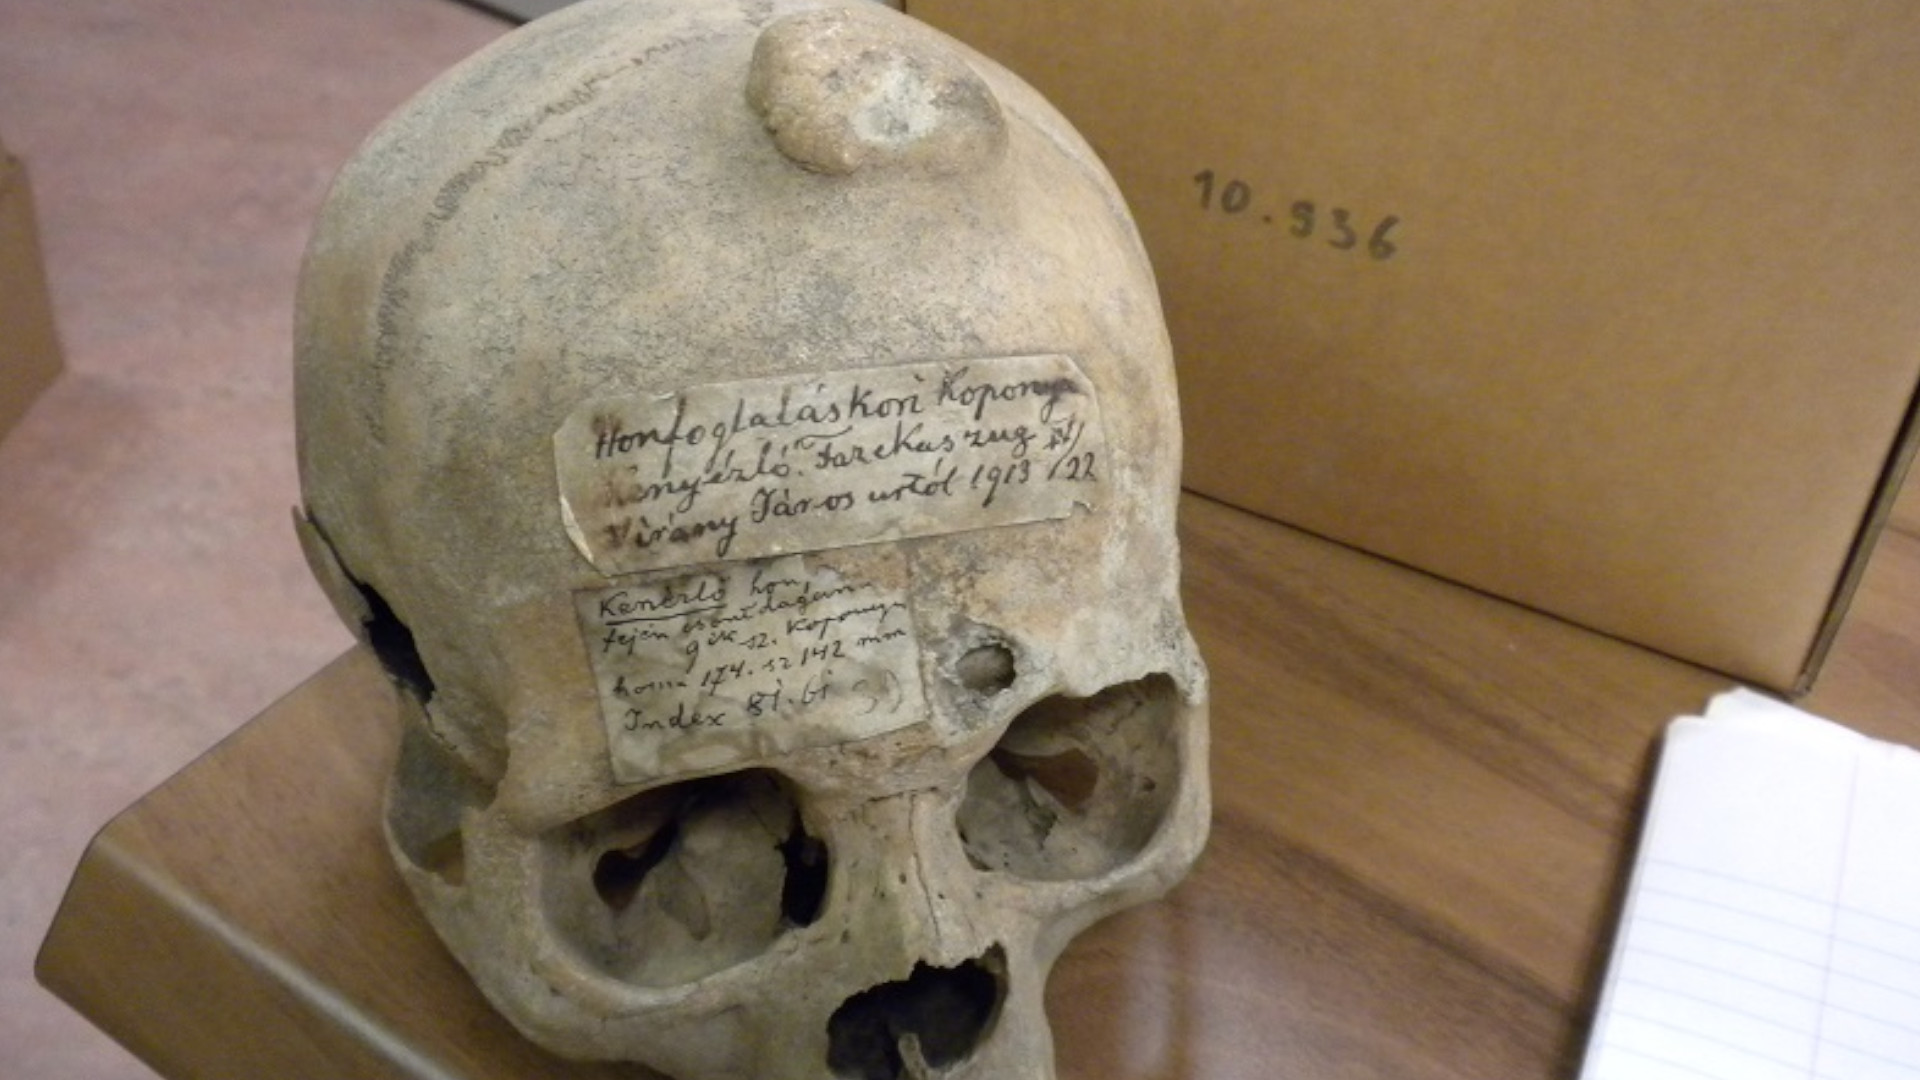 10.936
Honfoglaláskori Kopony
Kenyézlő. Fazekaszug IV/
Virány János urtól 1913 /22
Kenézlő hon,
fején csontdagan
9 ik sz. Koponya
hossz 174. sz 142 mm
Index 81.61